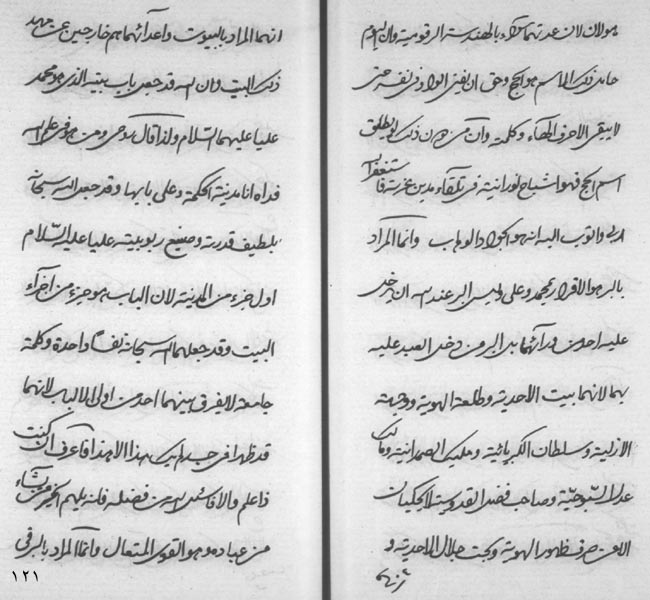 هو لان لان عدتهما سواء بالهندسة الرقومية وان اليوم
حامل ذلك الماسم هو الحج وحق ان يفنى الواد في نفسه حتى
لا يبقى الاحرف الهاء وكلمة وان من دون ذلك لم يطلق
اسم الحج فهو اشباح نورانية في تلقاء مدين عز ربه فاستغفر الله
ربي واتوب اليه انه هو الجواد الوهاب وانما المراد
بالبر هو الاقرار بمحمد وعلي وليس البر عند الله ان يدخل
عليه احد من ورائهما بل البر من دخل العبد عليه
بهما لانهما بيت الاحدية وطلعة الهوية ووجهة
الازلية وسلطان الكبريائية ومليك الصمدانية ومالك
عدل السبوحية وصاحب فضل القدوسية لا يحكيان
الا عن صرف ظهور الهوية وبحت جلال الاحدية و
انهما
انهما المراد بالبيوت واعدائهما هم خارجين عن عهد
ذلك البيت وان الله قد جعل باب بيته الذي هو محمد
عليا عليهما السلام ولذا قال روحي ومن هو في علم الله
فداه انا مدينة الحكمة وعلي بابها وقد جعل الله سبحانه
بلطيف قدرته وصنيع ربوبيته عليا عليه السلام
اول جزء من المدينة لان الباب هو جزء من اجزاء
البيت وقد جعلهما الله سبحانه نفسا واحدة وكلمة
جامعة لا يفرق بينهما احد من اولي الالباب لانهما
قد ظهرا في جسد بهذا الامر فاعرف ان كنت
ذا علم والا فاسئل الله من فضله فانه يلهم الخير من يشاء
من عباده وهو القوي المتعال وانما المراد بالرقي
١٢١